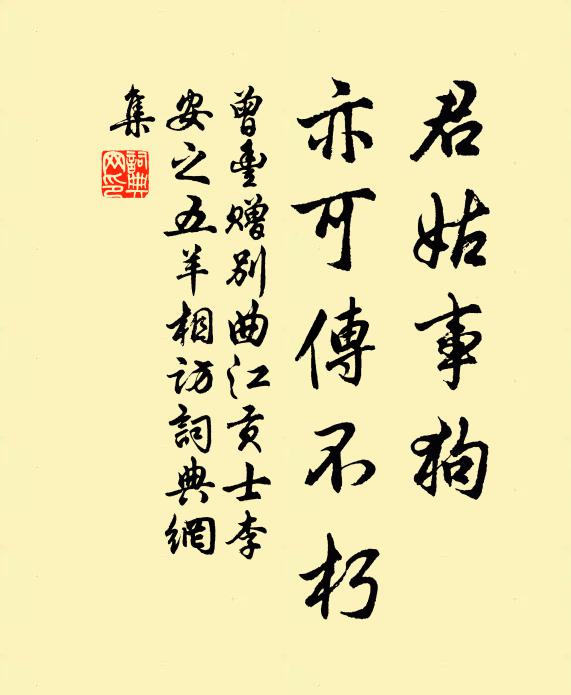 君姑事狗
亦可傳不朽
曾豊贈別曲江贡士李
安之五羊相訪詞典網
集
詞典
网印